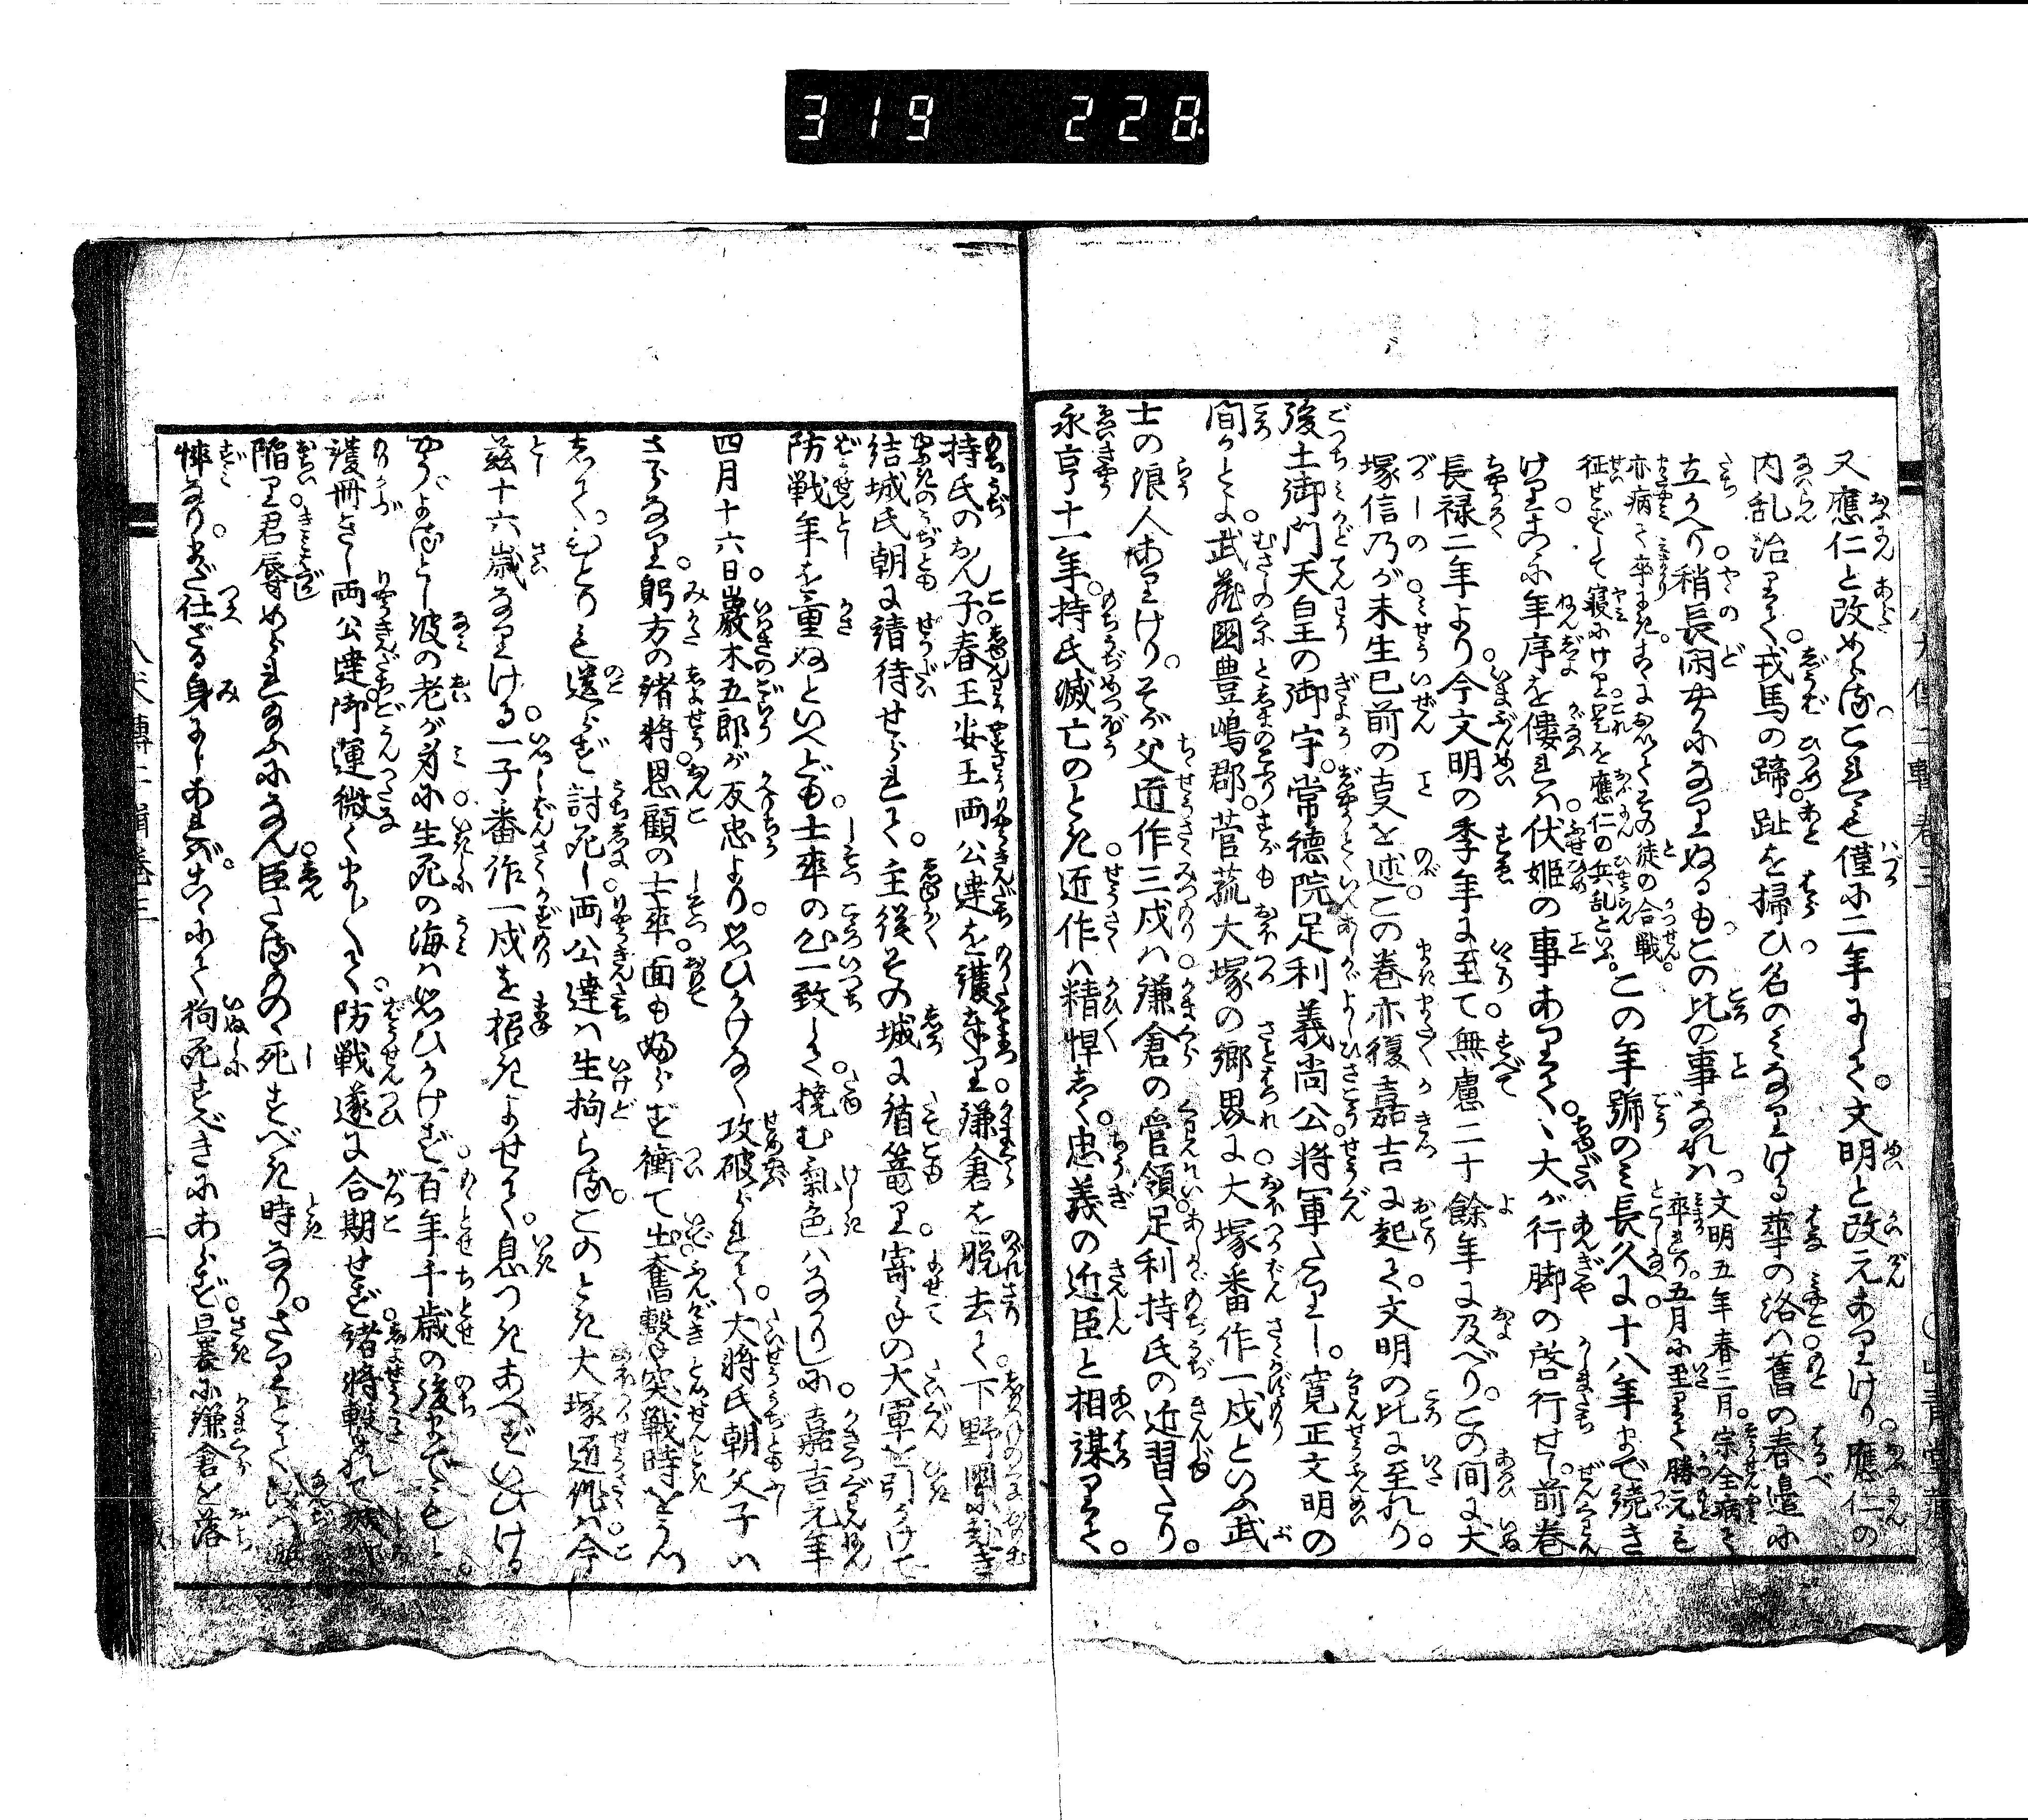 319 228
又應仁と改めらる。これも僅に二年にして。文明と改元ありけり。應仁の
内乱治りて。戎馬の蹄。趾を掃ひ名のみなりける華の洛は舊の春邊に
立かへり。稍長閑になりぬるもこの比の事なれば。文明五年春三月。宗全病て
卒りぬ。五月に至りて勝元も
亦病て卒りにき。こゝにおいてその徒の合戦。
征せずして寝にけり。是を應仁の兵乱といふ。この年號のみ長久に。十八年まで続き
けり。こゝに年序を僂れば。伏姫の事ありて。丶大が行脚の啓行せし。前巻
長禄二年より。今文明の季年に至て。無慮二十餘年に及べり。この間に犬
塚信乃が。未生已前の事を述。この巻亦復嘉吉に起て。文明の比に至れり。
後土御門天皇の御宇。常徳院足利義尚公。将軍たりし。寛正文明の
間かとよ。武蔵國豊嶋郡。菅菰大塚の郷界に。大塚番作一戍といふ武
士の浪人ありけり。そが父匠作三戍は。鎌倉の管領足利持氏の近習たり。
永亨十一年。持氏滅亡のとき。匠作は精悍しく。忠義の近臣と相謀りて。
持氏のおん子。春王安王両公達を護奉り。鎌倉を脱去て。下野國に赴き
結城氏朝に請待せられて。主従その城に盾篭り。寄手の大軍を引うけて
防戦年を重ぬといへども。士卒の心一致して。撓む氣色はなかりしに。嘉吉元年
四月十六日。巖木五郎が反忠より。思ひかけなく攻破られて。大将氏朝父子い
さらなり。躬方の諸将。恩顧の士卒。面もふらず衝て出。奮撃突戦時をうつ
して。ひとりも遺らず討死し。両公達は生拘らる。このとき大塚匠作は。今
茲十六歳なりける。一子番作一戍を招きよせて。息つきあへずいひける
やう。よるとし波の老が身に。生死の海は思ひかけず。百年千歳の後までもと。
護冊きし両公達。御運微くましまして。防戦遂に合期せず。諸将撃れて城
陥り。君辱めらるゝ日になん。臣たるもの死すべき時なり。さりとて
悴なり。まだ仕ざる身にしあれば。こゝにて狗死すべきにあらず。曩に鎌倉を落